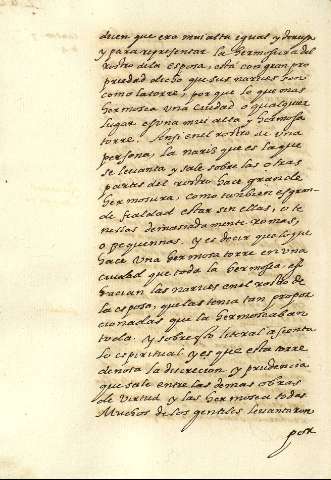 dicen que era mui alta
y para representar la hermosura del
rostro de la esposa, está con gran pro
priedad dicho que sus narices son
como la torre, por que lo que mas
hermosea una ciudad o qualquier
lugar es una mui alta y hermosa
torre. Ansi en el rostro de una
persona, la nariz que es la que
se levanta y sale sobre las otras
partes del rostro hace grande
hermosura, como tambien es gran
de fealdad estar sin ellas, o te
nerlas demasiadamente romas,
o pequeñas. y es decir que lo que
hace una hermosa torre en una
ciudad que toda la hermosea, esso
hacian las narices en el rostro de
la esposa, que las tenia tan propor
cionadas que la hermoseaban
toda. y sobre esto literal asienta
lo espiritual y es que esta torre
denota la discrecion y prudencia
que sale entre las demas obras
de virtud y las hermosea todas
Muchos de los gentiles levantaron